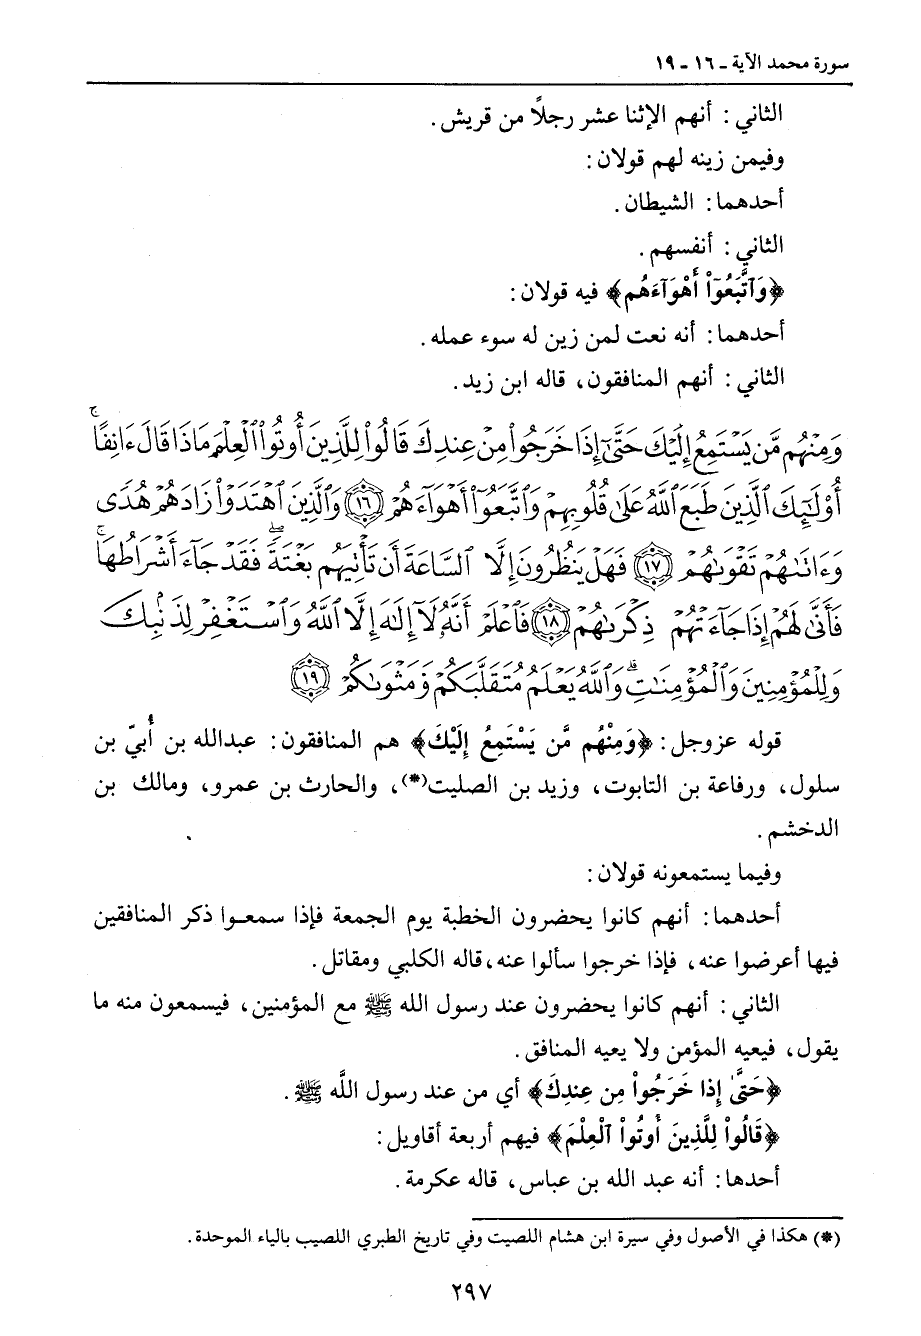 سورة محمد الآية ـ ١٦ ـ ١٩
الثاني : أنهم الإثنا عشر رجلاً من قريش .
وفيمن زينه لهم قولان :
أحدهما : الشيطان .
الثاني : أنفسهم .
﴿وَٱتَّبَعُوٓاْ أَهْوَآءَهُم﴾ فيه قولان :
أحدهما : أنه نعت لمن زين له سوء عمله .
الثاني : أنهم المنافقون ، قاله ابن زيد .
وَمِنْهُم مَّن يَسْتَمِعُ إِلَيْكَ حَتَّىٰٓ إِذَا خَرَجُواْ مِنْ عِندِكَ قَالُواْ لِلَّذِينَ أُوتُواْ ٱلْعِلْمَ مَاذَا قَالَ ءَانِفًا ۚ
أُوْلَـٰٓئِكَ ٱلَّذِينَ طَبَعَ ٱللَّهُ عَلَىٰ قُلُوبِهِمْ وَٱتَّبَعُوٓاْ أَهْوَآءَهُمْ ﴿١٦﴾ وَٱلَّذِينَ ٱهْتَدَوْاْ زَادَهُمْ هُدًى
وَءَاتَىٰهُمْ تَقْوَىٰهُمْ ﴿١٧﴾ فَهَلْ يَنظُرُونَ إِلَّا ٱلسَّاعَةَ أَن تَأْتِيَهُم بَغْتَةً ۖ فَقَدْ جَآءَ أَشْرَاطُهَا ۚ
فَأَنَّىٰ لَهُمْ إِذَا جَآءَتْهُمْ ذِكْرَىٰهُمْ ﴿١٨﴾ فَٱعْلَمْ أَنَّهُۥ لَآ إِلَـٰهَ إِلَّا ٱللَّهُ وَٱسْتَغْفِرْ لِذَنۢبِكَ
وَلِلْمُؤْمِنِينَ وَٱلْمُؤْمِنَـٰتِ ۗ وَٱللَّهُ يَعْلَمُ مُتَقَلَّبَكُمْ وَمَثْوَىٰكُمْ ﴿١٩﴾
قوله عزوجل : ﴿وَمِنْهُم مَّن يَسْتَمِعُ إِلَيْكَ﴾ هم المنافقون : عبدالله بن أُبيّ بن
سلول ، ورفاعة بن التابوت ، وزيد بن الصليت(*) ، والحارث بن عمرو ، ومالك بن
الدخشم .
وفيما يستمعونه قولان :
أحدهما : أنهم كانوا يحضرون الخطبة يوم الجمعة فإذا سمعـوا ذكر المنافقين
فيها أعرضوا عنه ، فإذا خرجوا سألوا عنه ، قاله الكلبي ومقاتل .
الثاني : أنهم كانوا يحضرون عند رسول الله ﷺ مع المؤمنين ، فيسمعون منه ما
يقول ، فيعيه المؤمن ولا يعيه المنافق .
﴿حَتَّىٰٓ إِذَا خَرَجُواْ مِن عِندِكَ﴾ أي من عند رسول اللَّه ﷺ .
﴿قَالُواْ لِلَّذِينَ أُوتُواْ ٱلْعِلْمَ﴾ فيهم أربعة أقاويل :
أحدها : أنه عبد الله بن عباس ، قاله عكرمة .
(*) هكذا في الأصول وفي سيرة ابن هشام اللصيت وفي تاريخ الطبري اللصيب بالياء الموحدة .
٢٩٧